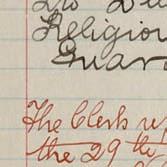 Religiou
Guar
The Clerk re
the 29 th